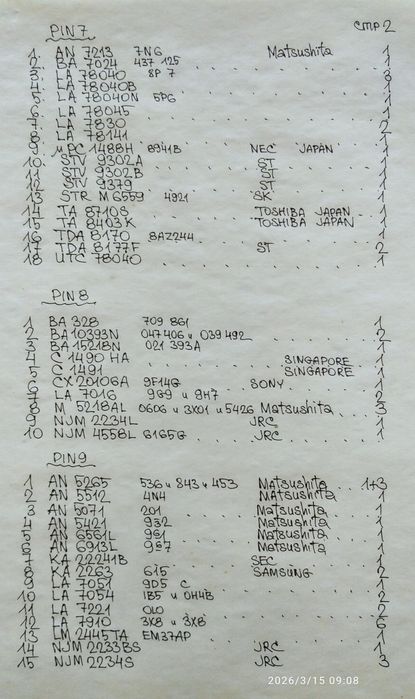 PIN7 стр 2
1. AN 7213 7NG Matsushita 1
2. BA 7024 437 125 1
3. LA 78040 8P 7 3
4. LA 78040B 1
5. LA 78040N 5PG 1
6. LA 78045 1
7. LA 7830 1
8. LA 78141 2
9. μPC 1488H 8941B NEC JAPAN 1
10. STV 9302A ST 1
11 STV 9302B ST 1
12 STV 9379 ST 1
13 STR M6559 4921 SK 1
14 TA 8710S TOSHIBA JAPAN 1
15 TA 8403K TOSHIBA JAPAN 1
16 TDA 8170 8AZ244 1
17 TDA 8177F ST 2
18 UTC 78040 1
PIN 8
1 BA 328 709 861 1
2 BA10393N 047 406 и 039 492 2
3 BA 15218N 021 393A 1
4 C 1490 HA SINGAPORE 1
5 C 1491 SINGAPORE 1
6 CX 20106A 9F14G SONY 1
7 LA 7016 9G9 и 9H7 2
8 M 5218AL 0606 и 3X01 и 5426 Matsushita 3
9 NJM 2234L JRC 1
10 NJM 4558L 6165G JRC 1
PIN9
1 AN 5265 536 и 843 и 453 Matsushita 1+3
2 AN 5512 4N4 Matsushita 1
3 AN 5071 201 Matsushita 1
4 AN 5421 932 Matsushita 1
5 AN 6561L 991 Matsushita 1
6 AN 6913L 987 Matsushita 1
7 KA 22241B SEC 1
8 KA 2263 615 SAMSUNG 2
9 LA 7051 9D5 C 1
10 LA 7054 1B5 и 0H4B 2
11 LA 7221 0L0 2
12 LA 7910 3K8 и 3X8 6
13 LM 2445TA EM37AP 1
14 NJM 2233BS JRC 1
15 NJM 2234S JRC 3
2026/3/15 09:08